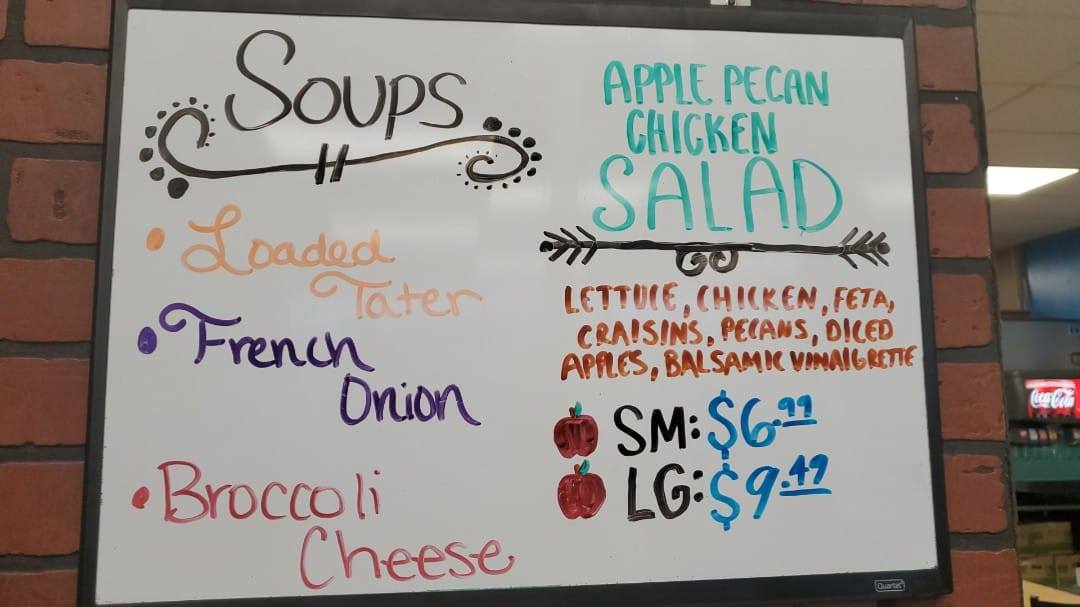 Soups
• Loaded
Tater
• French
Onion
• Broccoli
Cheese
APPLE PECAN
CHICKEN
SALAD
LETTUCE, CHICKEN, FETA,
CRAISINS, PECANS, DICED
APPLES, BALSAMIC VINAIGRETTE
SM: $6.99
LG: $9.49
Quartet
Coca-Cola